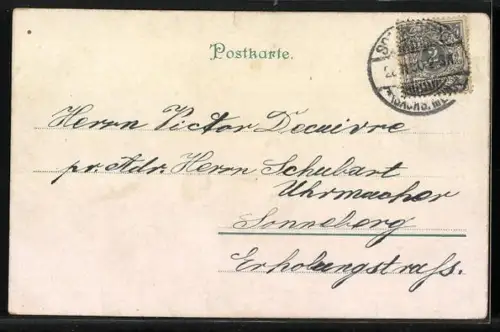 Postkarte.
Herrn Victor Decuivre
pr. Adr. Herrn Schubart
Uhrmacher
Sonneberg
Erholungstrafs.